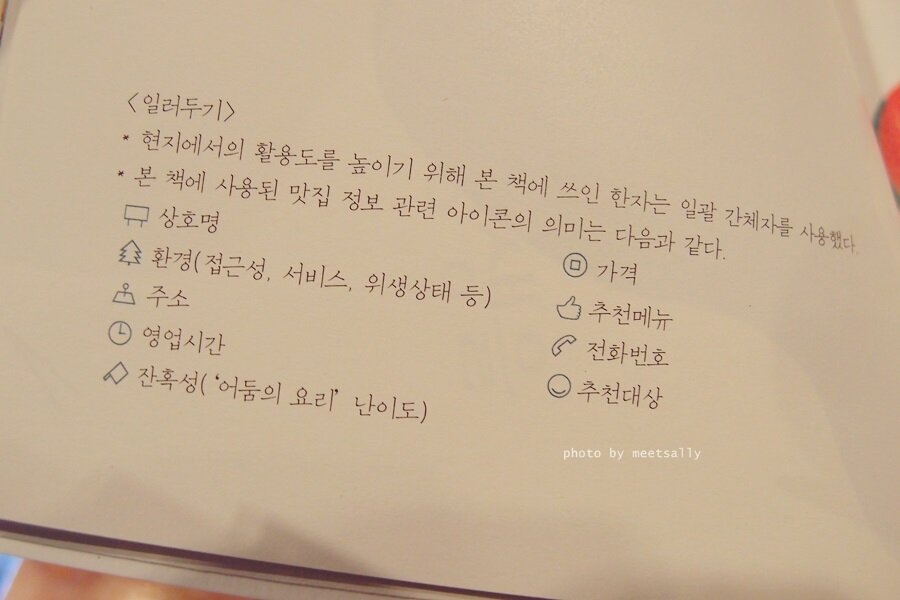 〈일러두기〉
* 현지에서의 활용도를 높이기 위해 본 책에 쓰인 한자는 일괄 간체자를 사용했다.
* 본 책에 사용된 맛집 정보 관련 아이콘의 의미는 다음과 같다.
상호명
환경(접근성, 서비스, 위생상태 등)
주소
영업시간
잔혹성('어둠의 요리' 난이도)
가격
추천메뉴
전화번호
추천대상
photo by meetsally